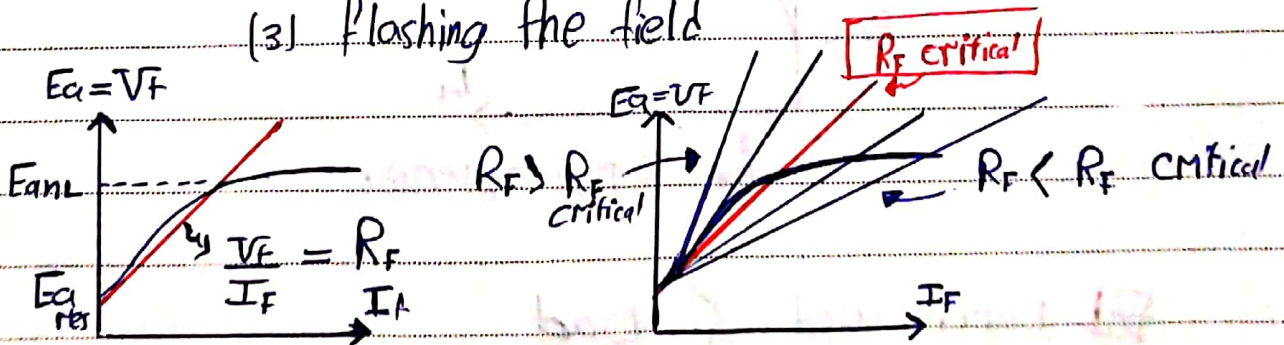 (3) Flashing the field
Ea = VF
EanL
Ea res
VF / IF = RF
IF
Ea = VF
RF critical
RF > RF critical
RF < RF critical
IF